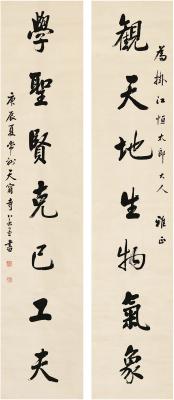 掛江恒太郎大人 雅正
觀天地生物氣象
學聖賢克己工夫
庚辰夏常州天寧寺書